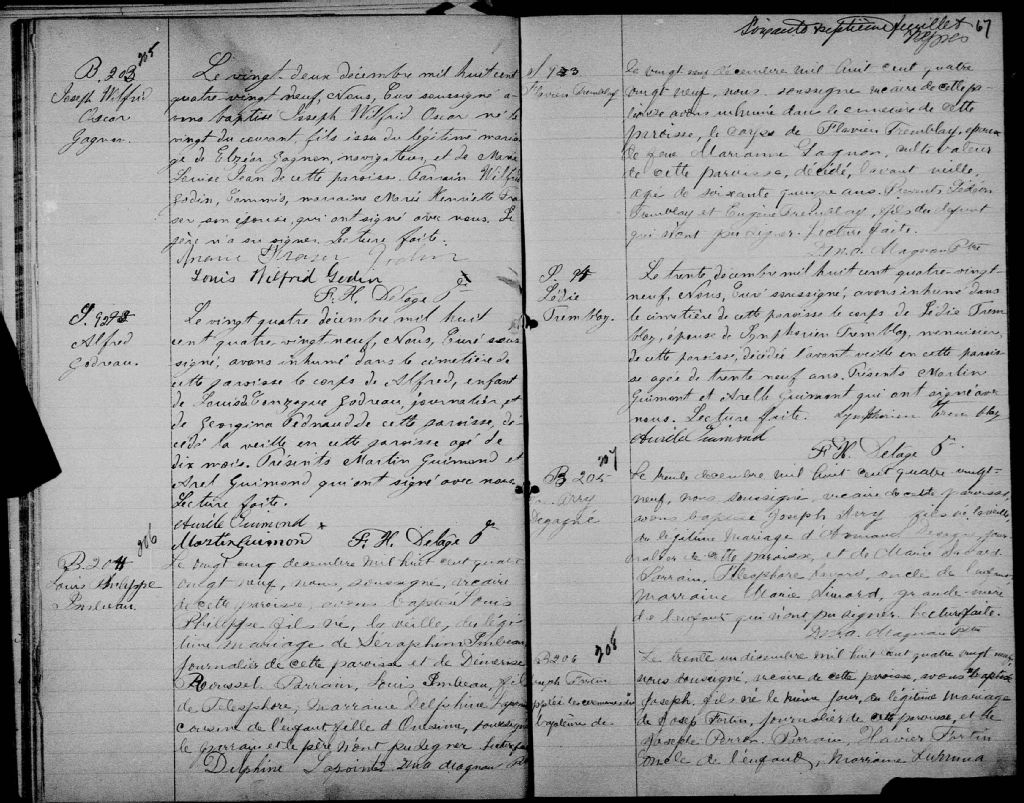 B. 203 205
Joseph Wilfrid
Oscar
Gagnon.
Le vingt-deux décembre mil huit cent
quatre vingt neuf, Nous, Curé soussigné a-
vons baptisé Joseph Wilfrid Oscar né le
vingt du courant, fils issu du légitime maria-
ge de Elzéar Gagnon, navigateur, et de Marie
Louise Jean de cette paroisse. Parrain Wilfrid
Godin, Commis, marraine Marie Henriette Fra-
ser son épouse, qui ont signé avec nous. Le
père n'a su signer. Lecture faite.
Fraser Godin
Louis Wilfrid Godin
F. H. Delâge
S.
Alfred
Godreau.
Le vingt quatre décembre mil huit
cent quatre vingt-neuf, Nous, Curé sous-
signé, avons inhumé dans le cimetière de
cette paroisse le corps de Alfred, enfant
de Louis de Gonzague Godreau, journalier, et
de Georgina Pednaud de cette paroisse, dé-
cédé la veille en cette paroisse agé de
dix mois. Présents Martin Guimond et
Guimond qui ont signé avec nous
Lecture faite.
Aurèle Guimond
Martin Guimond F. H. Delâge
B. 204 206
Louis Philippe
Imbeau
Le vingt cinq decembre mil huit cent quatre
vingt neuf, nous, soussigné, vicaire
de cette paroisse, avons baptisé Louis
Philippe fils né, la veille, du légi-
time mariage de Séraphin Imbeau
journalier de cette paroisse et de
Roussel. Parrain, Louis Imbeau, fils
de Télesphore, marraine Delphine
cousine de l'enfant fille d'Onésime, soussigné
le parrain et le père n'ont pu signer
Delphine Magnan
Soixante septième feuillet 67
S. 93
Flavien Tremblay
Le vingt neuf decembre mil huit cent quatre
vingt neuf, nous, soussigné vicaire de cette pa-
roisse avons inhumé dans le cimetière de cette
paroisse, le corps de Flavien Tremblay, époux
de feue Marianne Gagnon, cultivateur
de cette paroisse, décédé, l'avant veille,
agé de soixante quinze ans. Présents
Tremblay et Eugène Tremblay, fils du défunt
qui n'ont pu signer. Lecture faite.
Magnan Ptre
S. 94
Lédie
Tremblay.
Le trente décembre mil huit cent quatre-vingt-
neuf, Nous, Curé soussigné, avons inhumé dans
le cimetière de cette paroisse le corps de Lédie Trem-
blay, épouse de Symphorien Tremblay, menuisier,
de cette paroisse, décédée l'avant veille en cette parois-
se agée de trente neuf ans. Présents Martin
Guimont et Guimont qui ont signé avec
nous. Lecture faite. Symphorien Tremblay
Aurèle Guimond
F. H. Delâge
B 205 207
Degagné
Le trente decembre mil huit cent quatre vingt-
neuf, nous soussigné, vicaire de cette paroisse,
avons baptisé Joseph fils né la veille,
du légitime mariage d'Armand jour-
nalier de cette paroisse, et de Marie
Parrain, Télesphore oncle de l'enfant
Marraine Marie grande-mère
de l'enfant qui n'ont pu signer. Lecture faite.
Magnan Ptre
B 206 208
Joseph Fortin
suppléé les cérémonies du
baptême de
Le trente un décembre mil huit cent quatre vingt neuf,
nous soussigné, vicaire de cette paroisse, avons baptisé
Joseph, fils né le même jour, du légitime mariage
de Joseph Fortin, journalier de cette paroisse, et de
Perron. Parrain, Xavier Fortin
oncle de l'enfant, Marraine